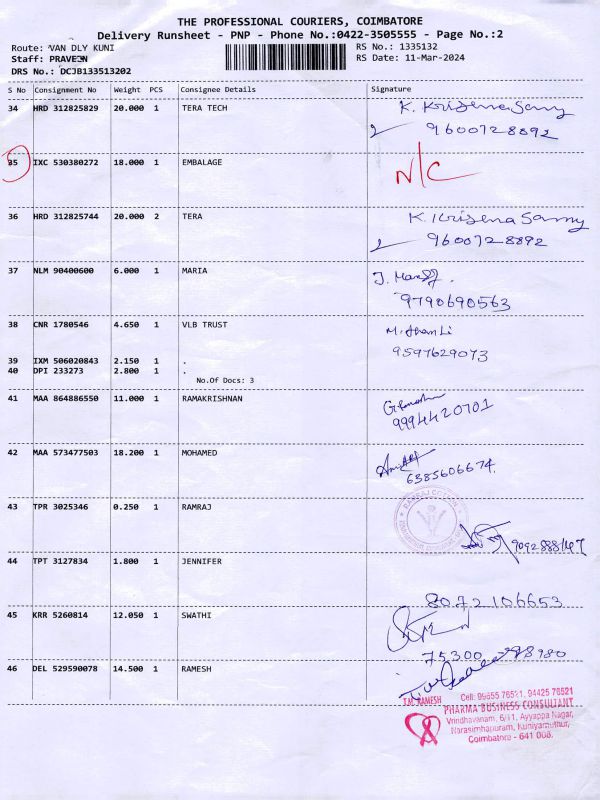 THE PROFESSIONAL COURIERS, COIMBATORE
Delivery Runsheet - PNP - Phone No.:0422-3505555 - Page No.:2
Route: VAN DLY KUNI
RS No.: 1335132
Staff: PRAVEEN
RS Date: 11-Mar-2024
DRS No.: DCJB133513202
S No Consignment No Weight PCS Consignee Details Signature
34 HRD 312825829 20.000 1 TERA TECH K. Krisena Samy
9600728892
35 IXC 530380272 18.000 1 EMBALAGE N/C
36 HRD 312825744 20.000 2 TERA K. Krisena Samy
9600728892
37 NLM 90400600 6.000 1 MARIA J.
9790690563
38 CNR 1780546 4.650 1 VLB TRUST M.
9597629073
39 IXM 506020843 2.150 1 .
40 DPI 233273 2.800 1 .
No.Of Docs: 3
41 MAA 864886550 11.000 1 RAMAKRISHNAN
9994420701
42 MAA 573477503 18.200 1 MOHAMED
6385606674
43 TPR 3025346 0.250 1 RAMRAJ
RAMRAJ COTTON
44 TPT 3127834 1.800 1 JENNIFER
8072106653
45 KRR 5260814 12.050 1 SWATHI
46 DEL 529590078 14.500 1 RAMESH
T.M. RAMESH Cell: 99655 76521, 94425 76521
PHARMA BUSINESS CONSULTANT
Vrindhavanam, 6/11, Ayyappa Nagar,
Narasimhapuram, Kuniyamuthur,
Coimbatore - 641 008.